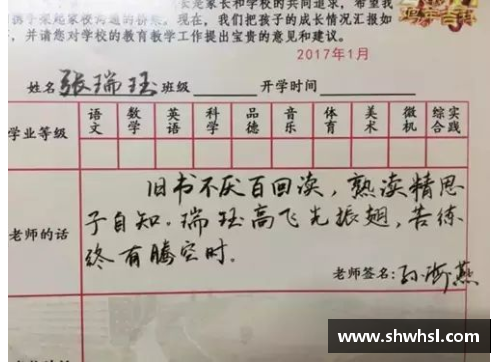 长是家长和学校的共同追求,希望我
携手架起家校沟通的桥梁。现在,我们把孩子的成长情况汇报如
并请您对学校的教育教学工作提出宝贵的意见和建议。
2017年1月
姓名 张瑞珏 班级 开学时间
学业等级 语文 数学 英语 科学 品德 音乐 体育 美术 微机 综合实践
老师的话
旧书不厌百回读,熟读精思
子自知.瑞珏高飞先振翅,苦练
终有腾空时.
老师签名: 孙海燕
www.shwhsl.com